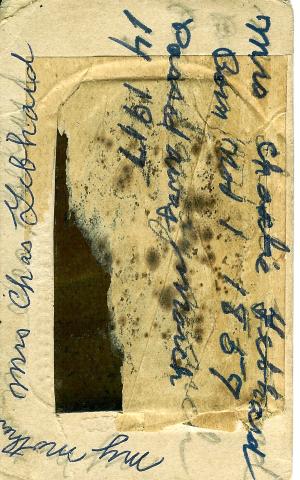 Mrs Charlie Gebhard
Born Oct 1 1859
Passed away March
14 1917
Mrs Chas Gebhard
my mother